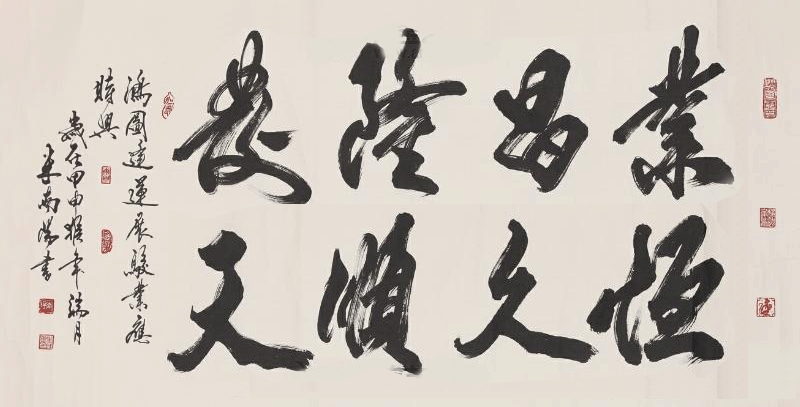 業恒
昌久
隆順
發天
鴻圖達運展駿業應
時興
歲在甲申猴年瑞月
南陽書